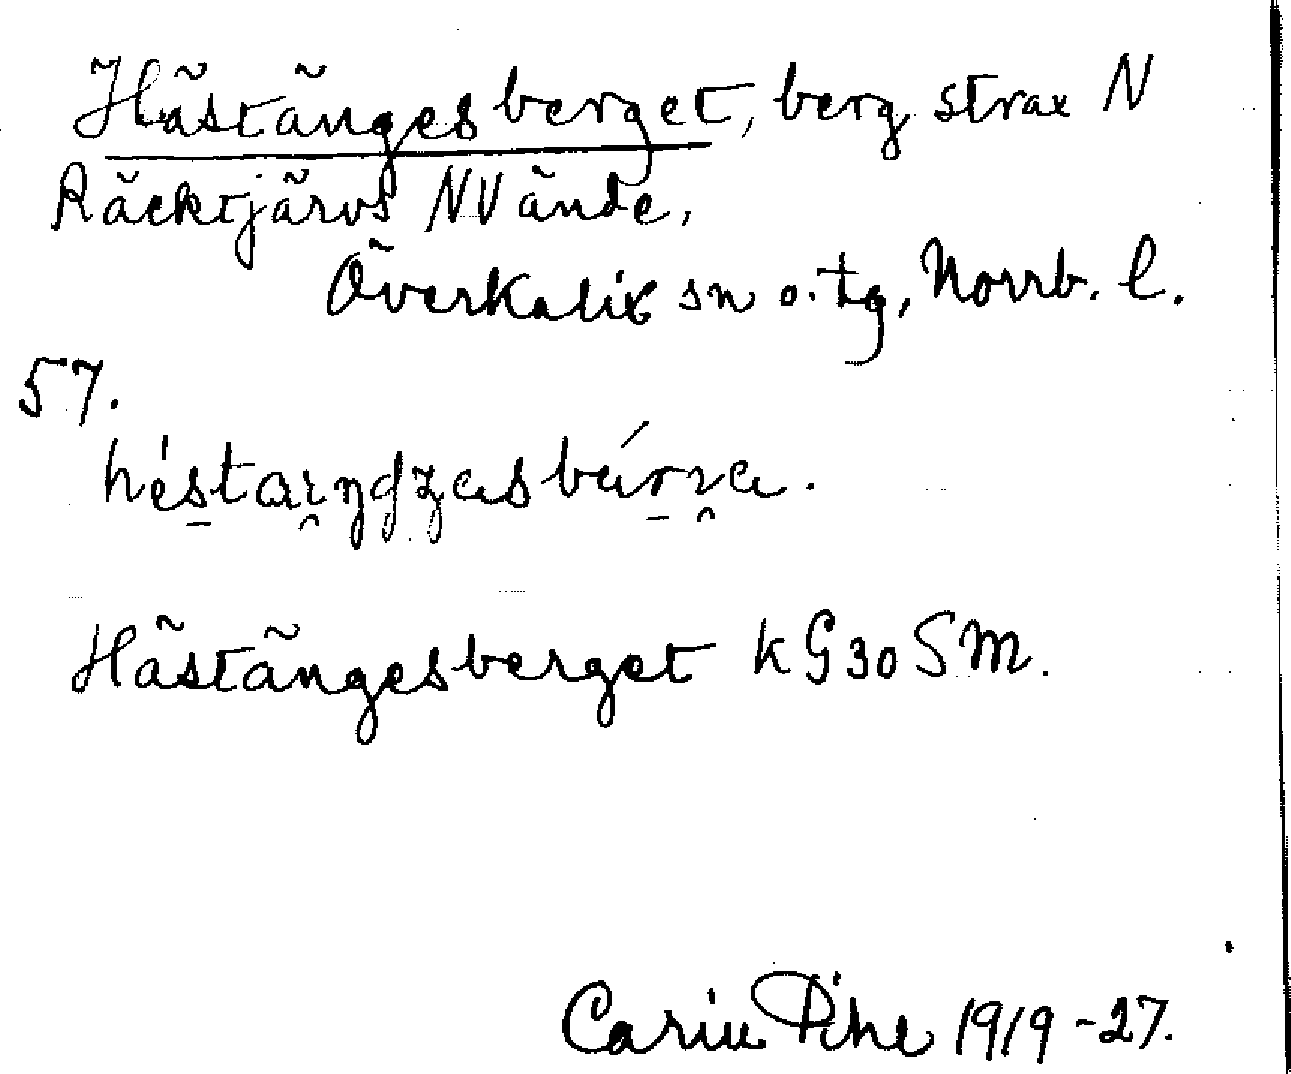 Hästängesberget, berg strax N
Räcktjärvs NV ände,
Överkalix sn o. tg, Norrb. l.
57.
Hästängesberget KG30SM.
Carin Pihl 1919-27.